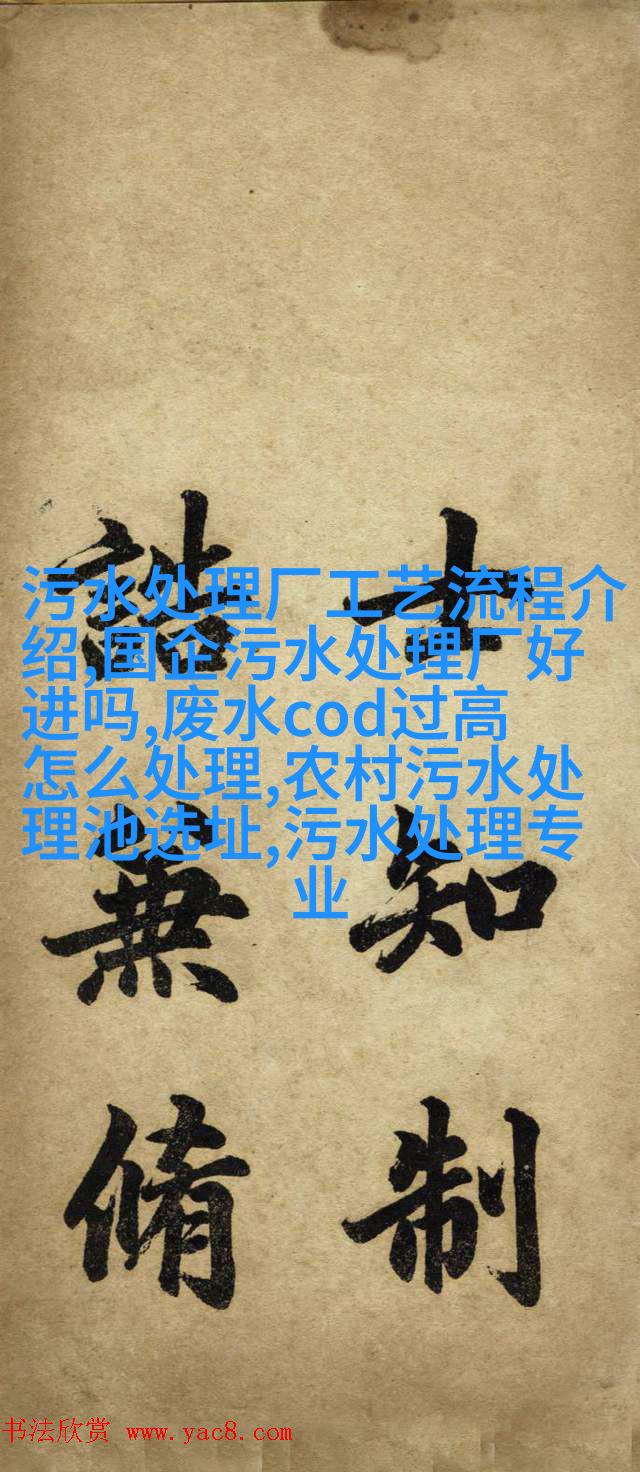 士知制
誥兼脩
污水处理厂工艺流程介
绍,国企污水处理厂好
进吗,废水cod过高
怎么处理,农村污水处
理池选址,污水处理专
业
书法欣赏 www.yac8.com